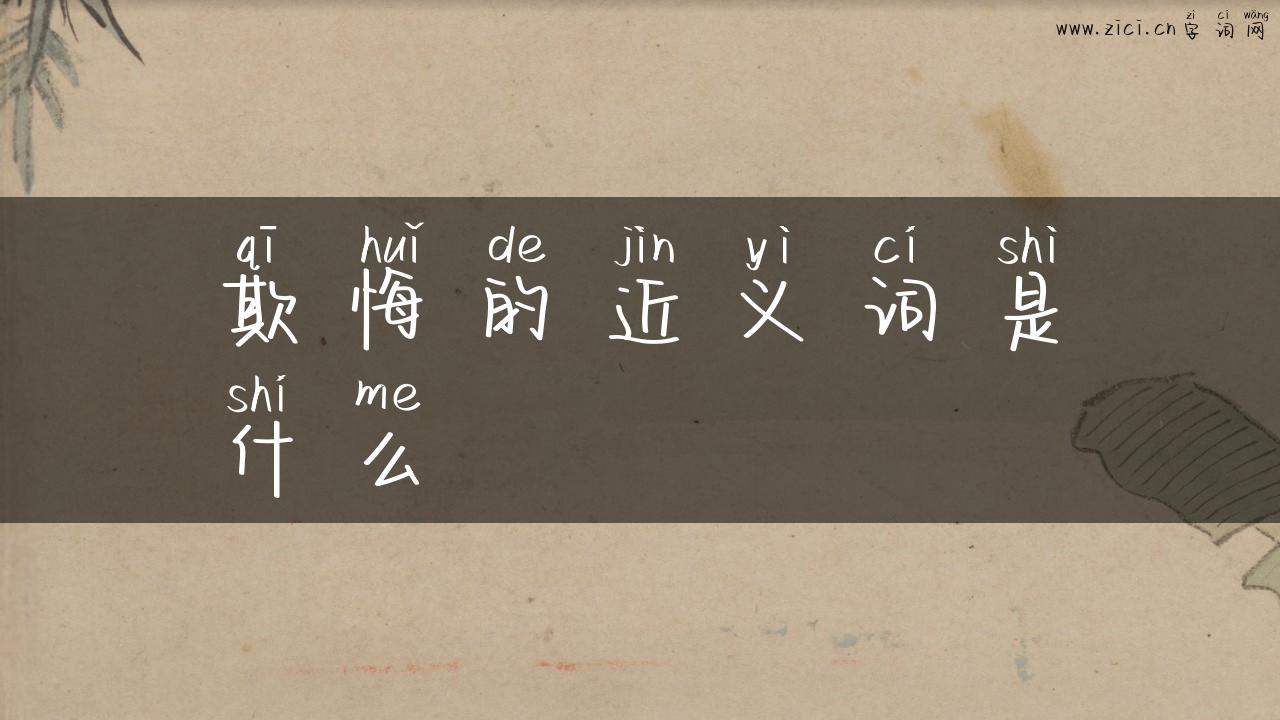 zì cí wǎng
www.zici.cn 字词网
qī huǐ de jìn yì cí shì
欺悔的近义词是
shí me
什么